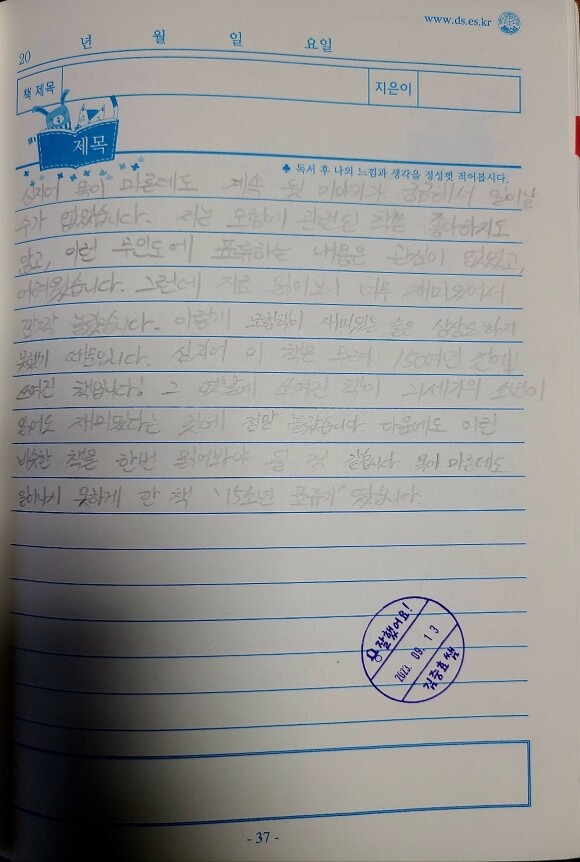 www.ds.es.kr
20 년 월 일 요일
책 제목 지은이
제목
♣ 독서 후 나의 느낌과 생각을 정성껏 적어봅시다.
심지어 목이 마른데도 계속 뒷 이야기가 궁금해서 일어날
수가 없었습니다. 저는 모험에 관련된 책을 좋아하지도
않고, 이런 무인도에 표류하는 내용은 관심이 없었고,
어려웠습니다. 그런데 지금 읽어보니 너무 재미있어서
깜짝 놀랐습니다. 이렇게 모험책이 재미있는 줄은 상상도 하지
못했기 때문입니다. 심지어 이 책은 무려 150여년 전에
쓰여진 책입니다! 그 옛날에 쓰여진 책이 21세기의 소년이
읽어도 재미있다는 것에 정말 놀랐습니다. 다음에도 이런
비슷한 책을 한번 읽어봐야 될 것 같습니다. 목이 마른데도
일어나지 못하게 한 책 '15소년 표류기' 였습니다.
참잘했어요!
2023. 09. 13
김종효쌤
- 37 -